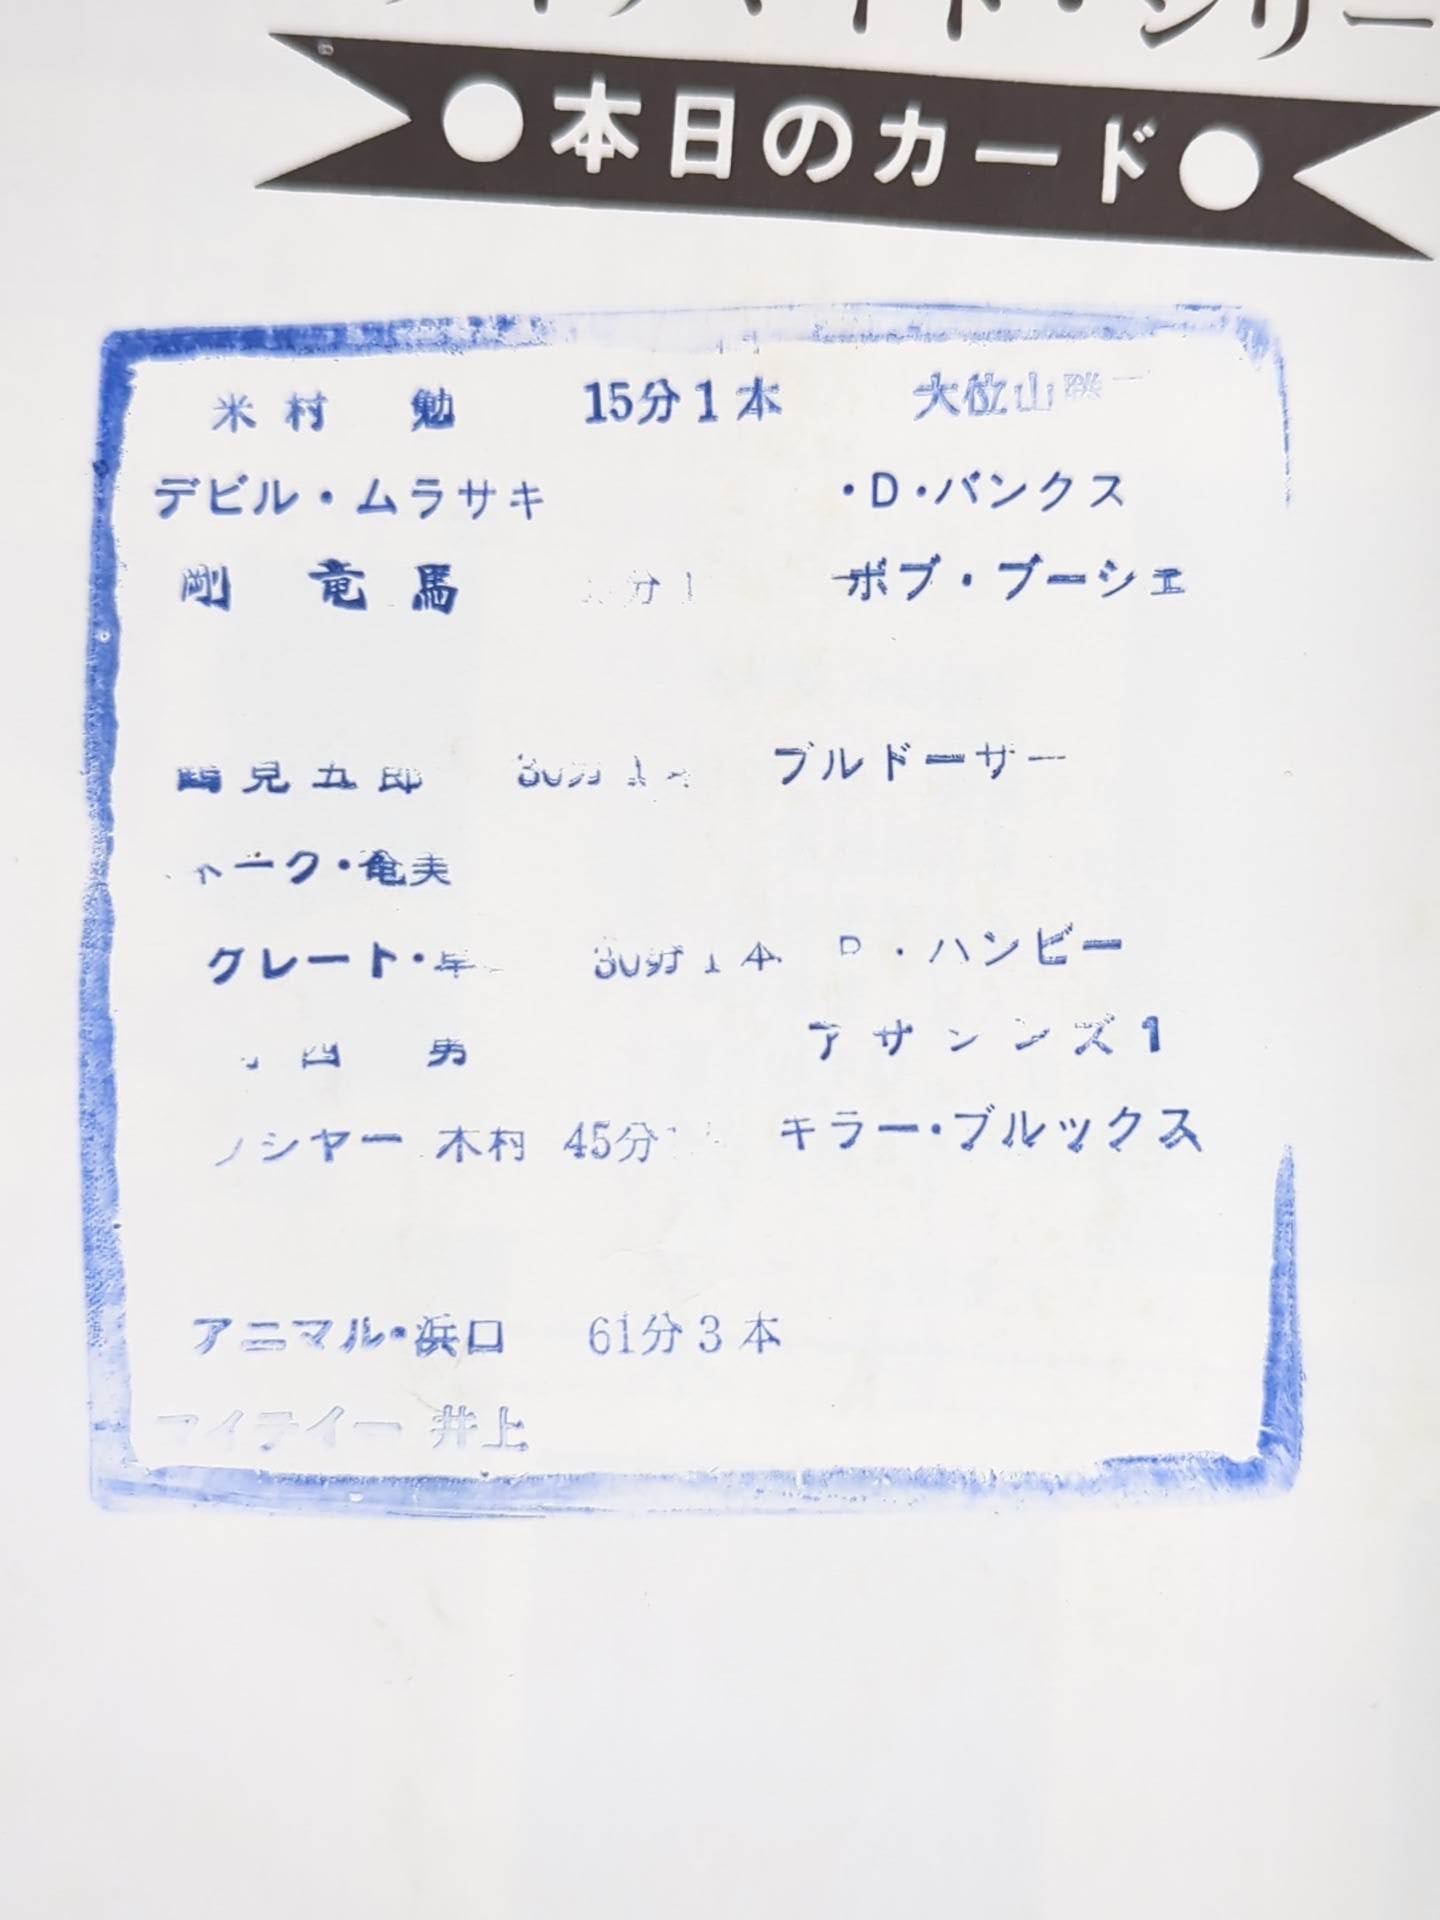 本日のカード
米村 勉 15分1本 大位山勝
デビル・ムラサキ ・D・バンクス
剛 竜馬 分1 ボブ・ブーシェ
鶴見五郎 30分1本 ブルドーザー
ーク・竜夫
グレート・草 30分1本 ・ハンビー
男 1
シヤー 木村 45分 キラー・ブルックス
アニマル・浜口 61分3本
マイテイー 井上